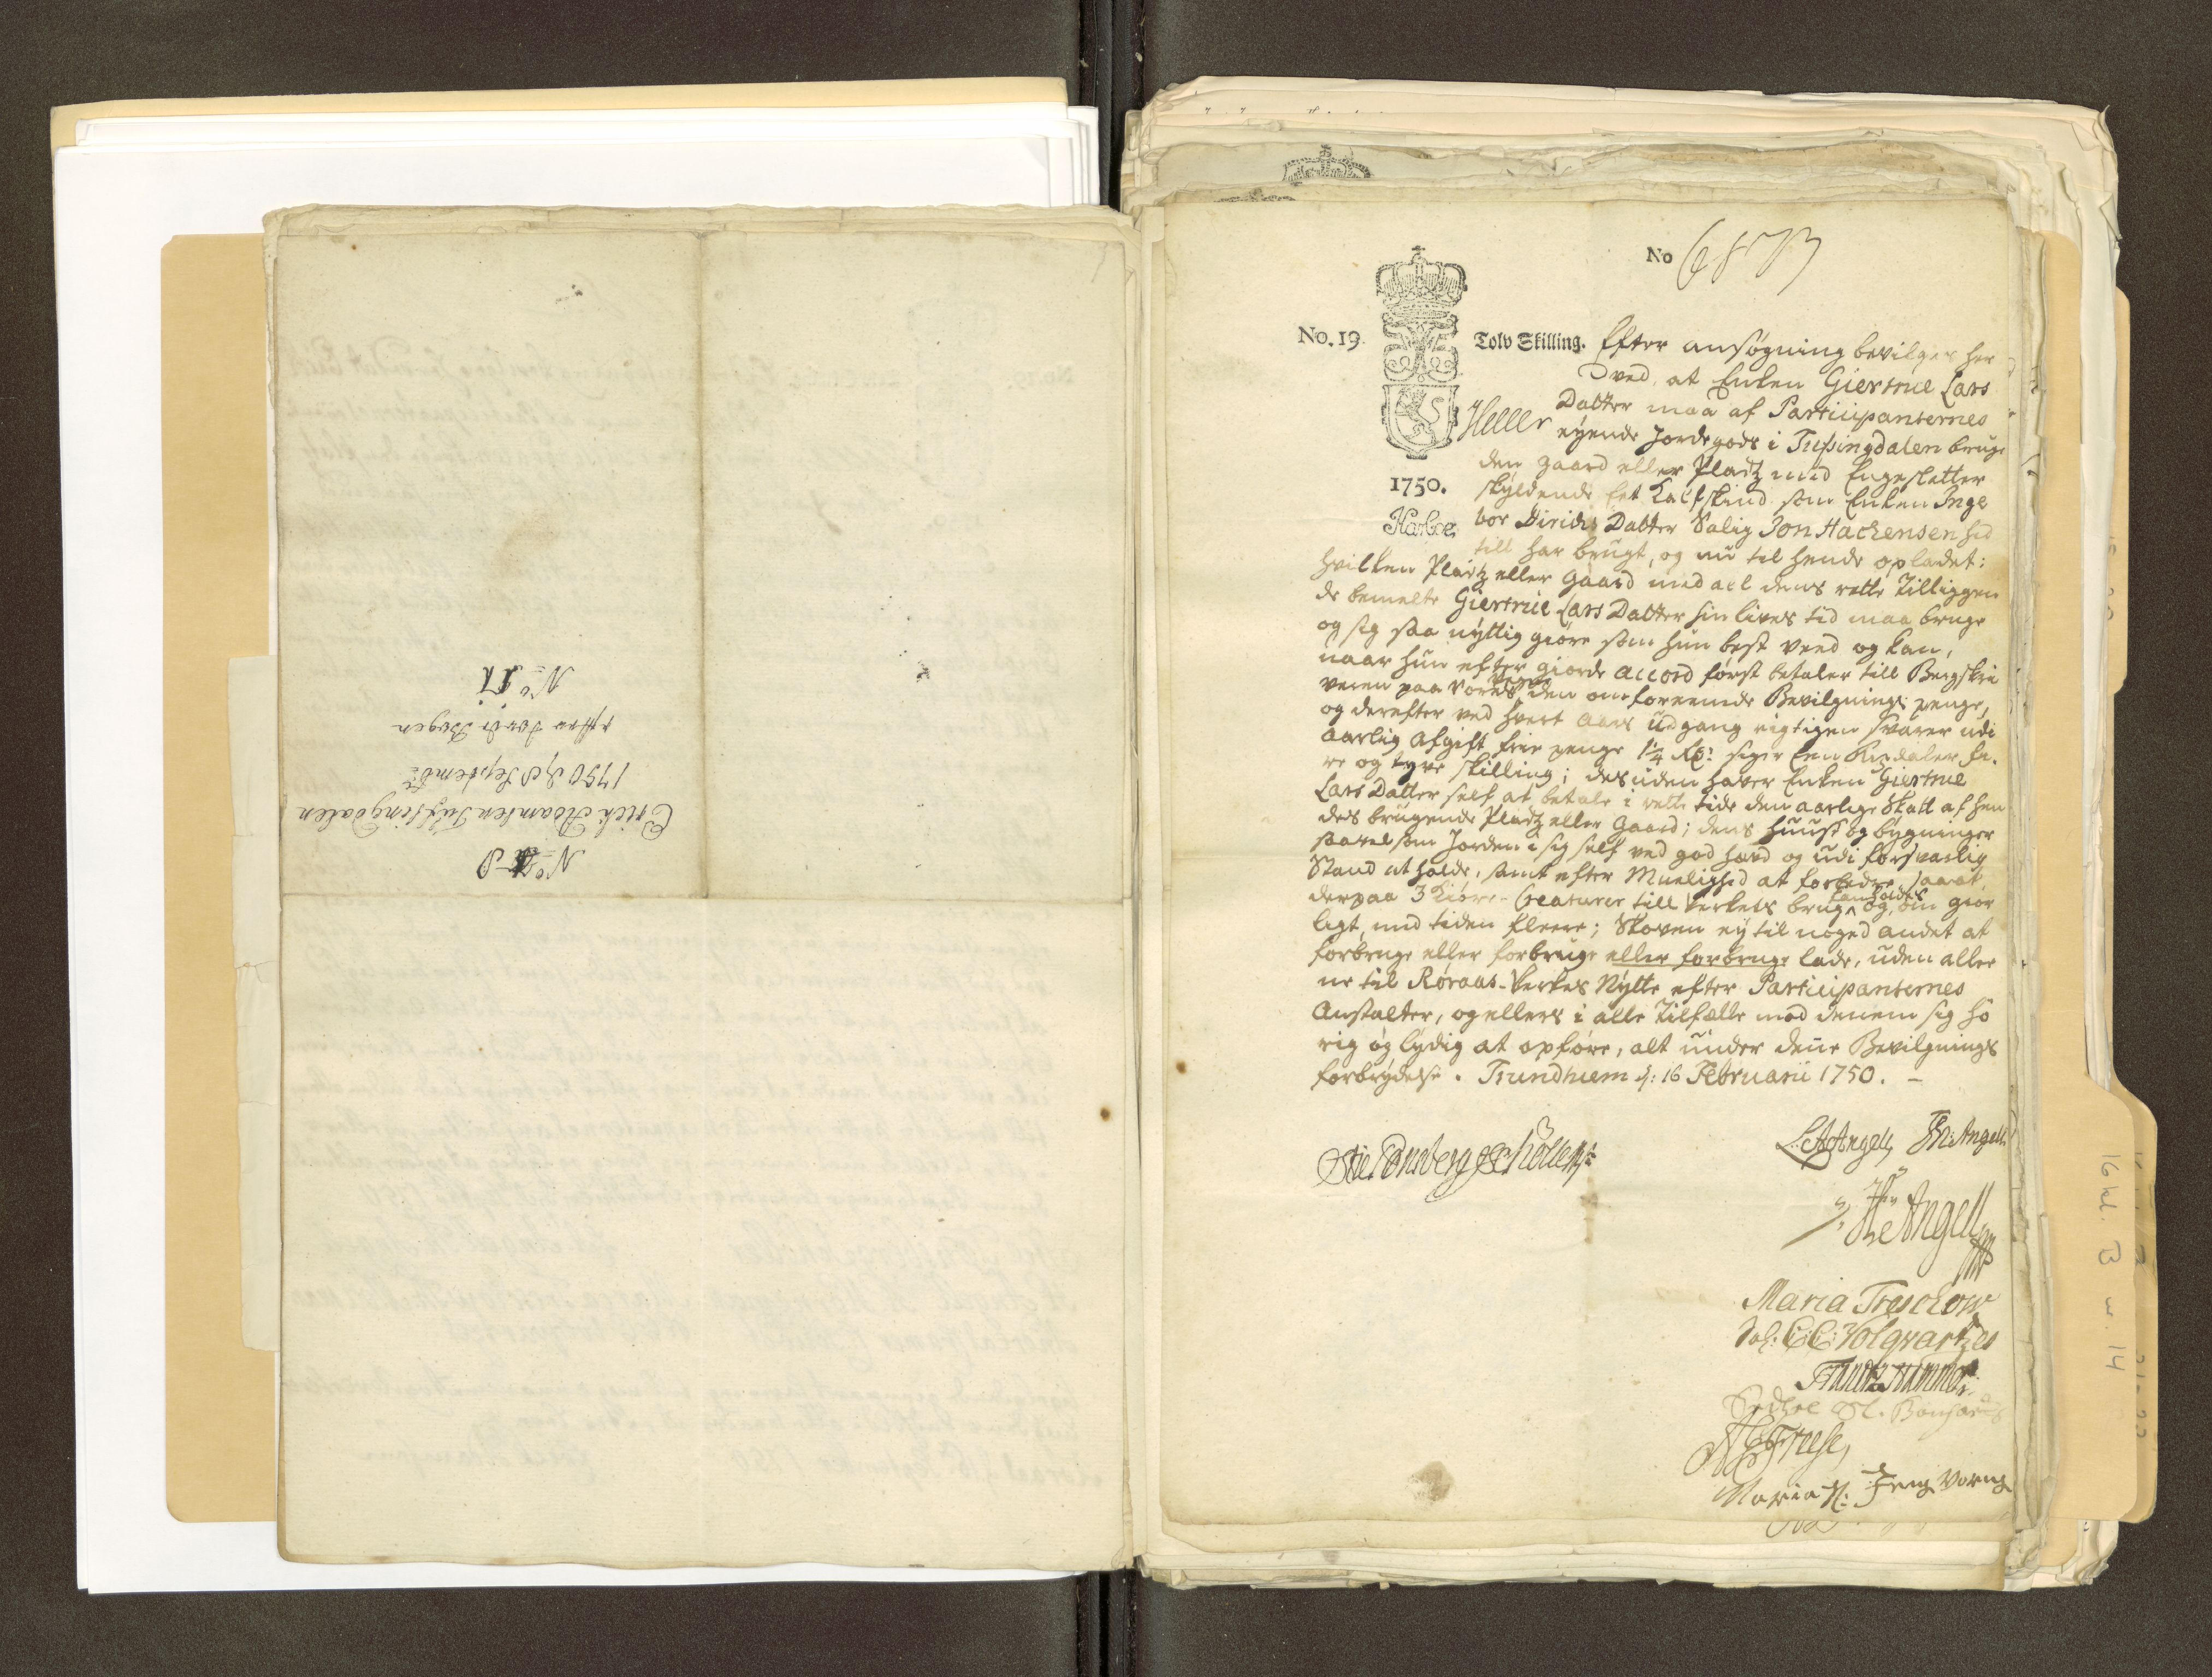 No. 8
Erich Aamsen Tufsingdalen
1750 d. 8 Septembr
efter Jorde Bogen
No. 17
No 6873
No. 19
Tolv Skilling.
1750.
Heller
Efter ansøgning bevilges her
ved, at Enken Giertrue Lars
Datter maa af Participanternes
eyende Jordegods i Tufsingdalen bruge
den gaard eller Pladtz med Engesletter
skyldende Eet Kalfskind som Enken Inge
bor Dirichs Datter Salig Jon Hachensen hid
till har brugt, og nu til hende opladet:
hvilken Pladtz eller gaard med all dens rette Tilliggen
de bemelte Giertrue Lars Datter sin lives tid maa bruge
og sig saa nyttig giøre som hun best veed og kan,
naar hun efter giorde accord først betaler till Bergskri
veren paa Vores den omforeenede Bevilgnings penge,
og derefter ved hvert Aars Udgang rigtigen svarer udi
Aarlig Afgift frie penge 1¼ Rdr: siger Een Rixdaler fi.
re og tyve skilling; desuden haver Enken Giertrue
Lars Datter self at betale i rette tide den aarlige Skatt af hen
des brugende Pladtz eller Gaard; dens Huuse og bygninger
saavelsom Jorden i sig self ved god hævd og udi forsvarlig
Stand at holde, samt efter Muelighed at forbedre, saa at
derpaa 3 Kiøre-Creaturer till Verkets brug og, om giør
ligt, med tiden fleere; Skoven ey til noged andet at
forbruge eller forbruge eller forbruge lade, uden alle
ne til Røraas-Verkes Nytte efter Participanternes
Anstalter, og ellers i alle Tilfælle mod denem sig hø
rig og lydig at opføre, alt under denne Bevilgnings
forbrydelse. Trundhiem d: 16 Februarii 1750. -
Stie Tonsberg Schøller
L: Angell Th: Angell
H Angell
Maria Treschow
Sal: C: C: Volqvartzes
Frantz Hammer
Sl.
Friese
Maria Sl:
16 kl. B nr. 14